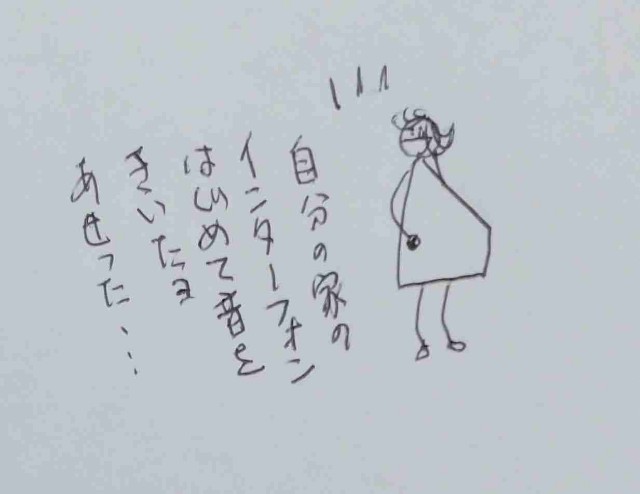 自分の家の
インターフォン
はじめて音を
きいたヨ
あせった...